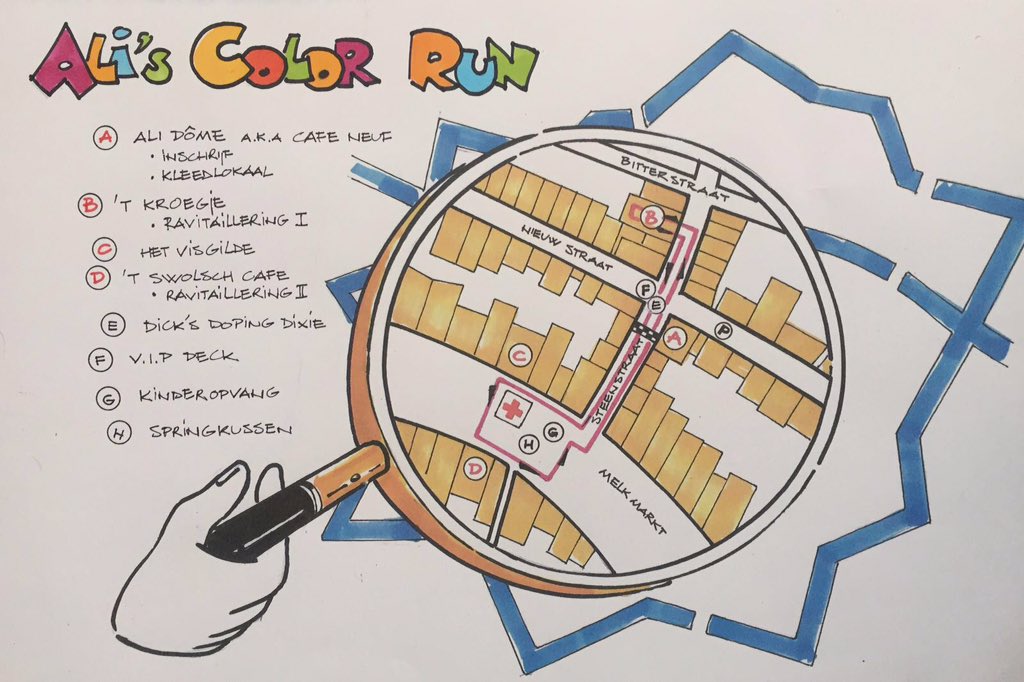 ALI'S COLOR RUN
A ALI DÔME A.K.A CAFE NEUF
• INSCHRIJF
• KLEEDLOKAAL
B 'T KROEGJE
• RAVITAILLERING I
C HET VISGILDE
D 'T SWOLSCH CAFE
• RAVITAILLERING II
E DICK'S DOPING DIXIE
F V.I.P DECK
G KINDEROPVANG
H SPRINGKUSSEN
BITTERSTRAAT
B
NIEUWSTRAAT
F
E
P
A
C
STEENSTRAAT
G
H
D
MELKMARKT